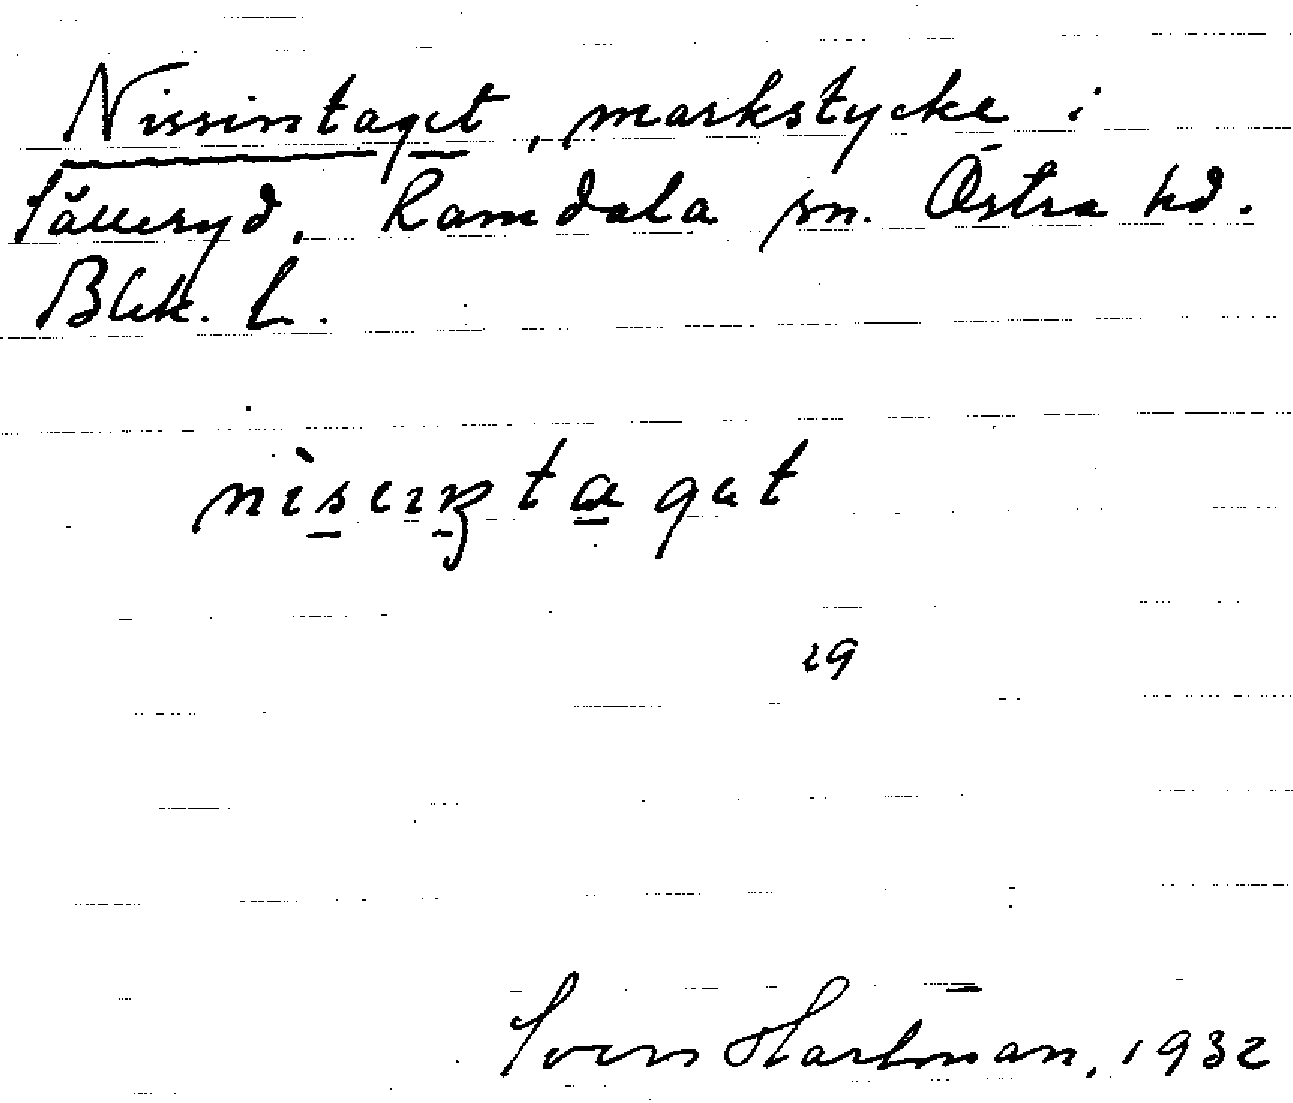 Nissintaget, markstycke i
Sälleryd, Ramdala sn. Östra hd.
Blek. L.
19
Sven Hartman, 1932